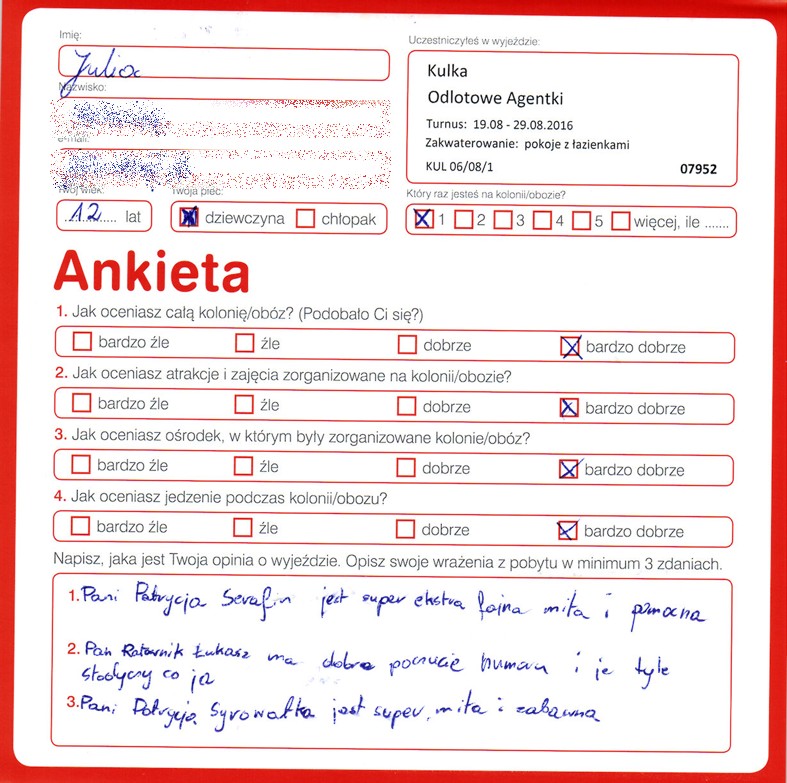 Imię:
Julia
Nazwisko:
e-mail:
Twój wiek:
12 lat
Twoja płeć:
dziewczyna chłopak
Uczestniczyłeś w wyjeździe:
Kulka
Odlotowe Agentki
Turnus: 19.08 - 29.08.2016
Zakwaterowanie: pokoje z łazienkami
KUL 06/08/1 07952
Który raz jesteś na kolonii/obozie?
1 2 3 4 5 więcej, ile .......
Ankieta
1. Jak oceniasz całą kolonię/obóz? (Podobało Ci się?)
bardzo źle źle dobrze bardzo dobrze
2. Jak oceniasz atrakcje i zajęcia zorganizowane na kolonii/obozie?
bardzo źle źle dobrze bardzo dobrze
3. Jak oceniasz ośrodek, w którym były zorganizowane kolonie/obóz?
bardzo źle źle dobrze bardzo dobrze
4. Jak oceniasz jedzenie podczas kolonii/obozu?
bardzo źle źle dobrze bardzo dobrze
Napisz, jaka jest Twoja opinia o wyjeździe. Opisz swoje wrażenia z pobytu w minimum 3 zdaniach.
1. Pani Patrycja Serafin jest super ekstra fajna miła i pomocna
2. Pan Ratownik Łukasz ma dobre poczucie humoru i je tyle
słodyczy co ja
3. Pani Patrycja Syrowatka jest super, miła i zabawna